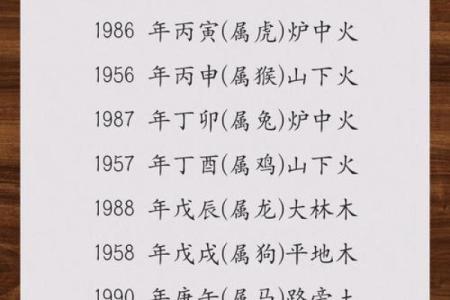 1986 年丙寅(属虎)炉中火
1956 年丙申(属猴)山下火
1987 年丁卯(属兔)炉中火
1957 年丁酉(属鸡)山下火
1988 年戊辰(属龙)大林木
1958 年戊戌(属狗)平地木
1990 年庚午(属马)路旁土